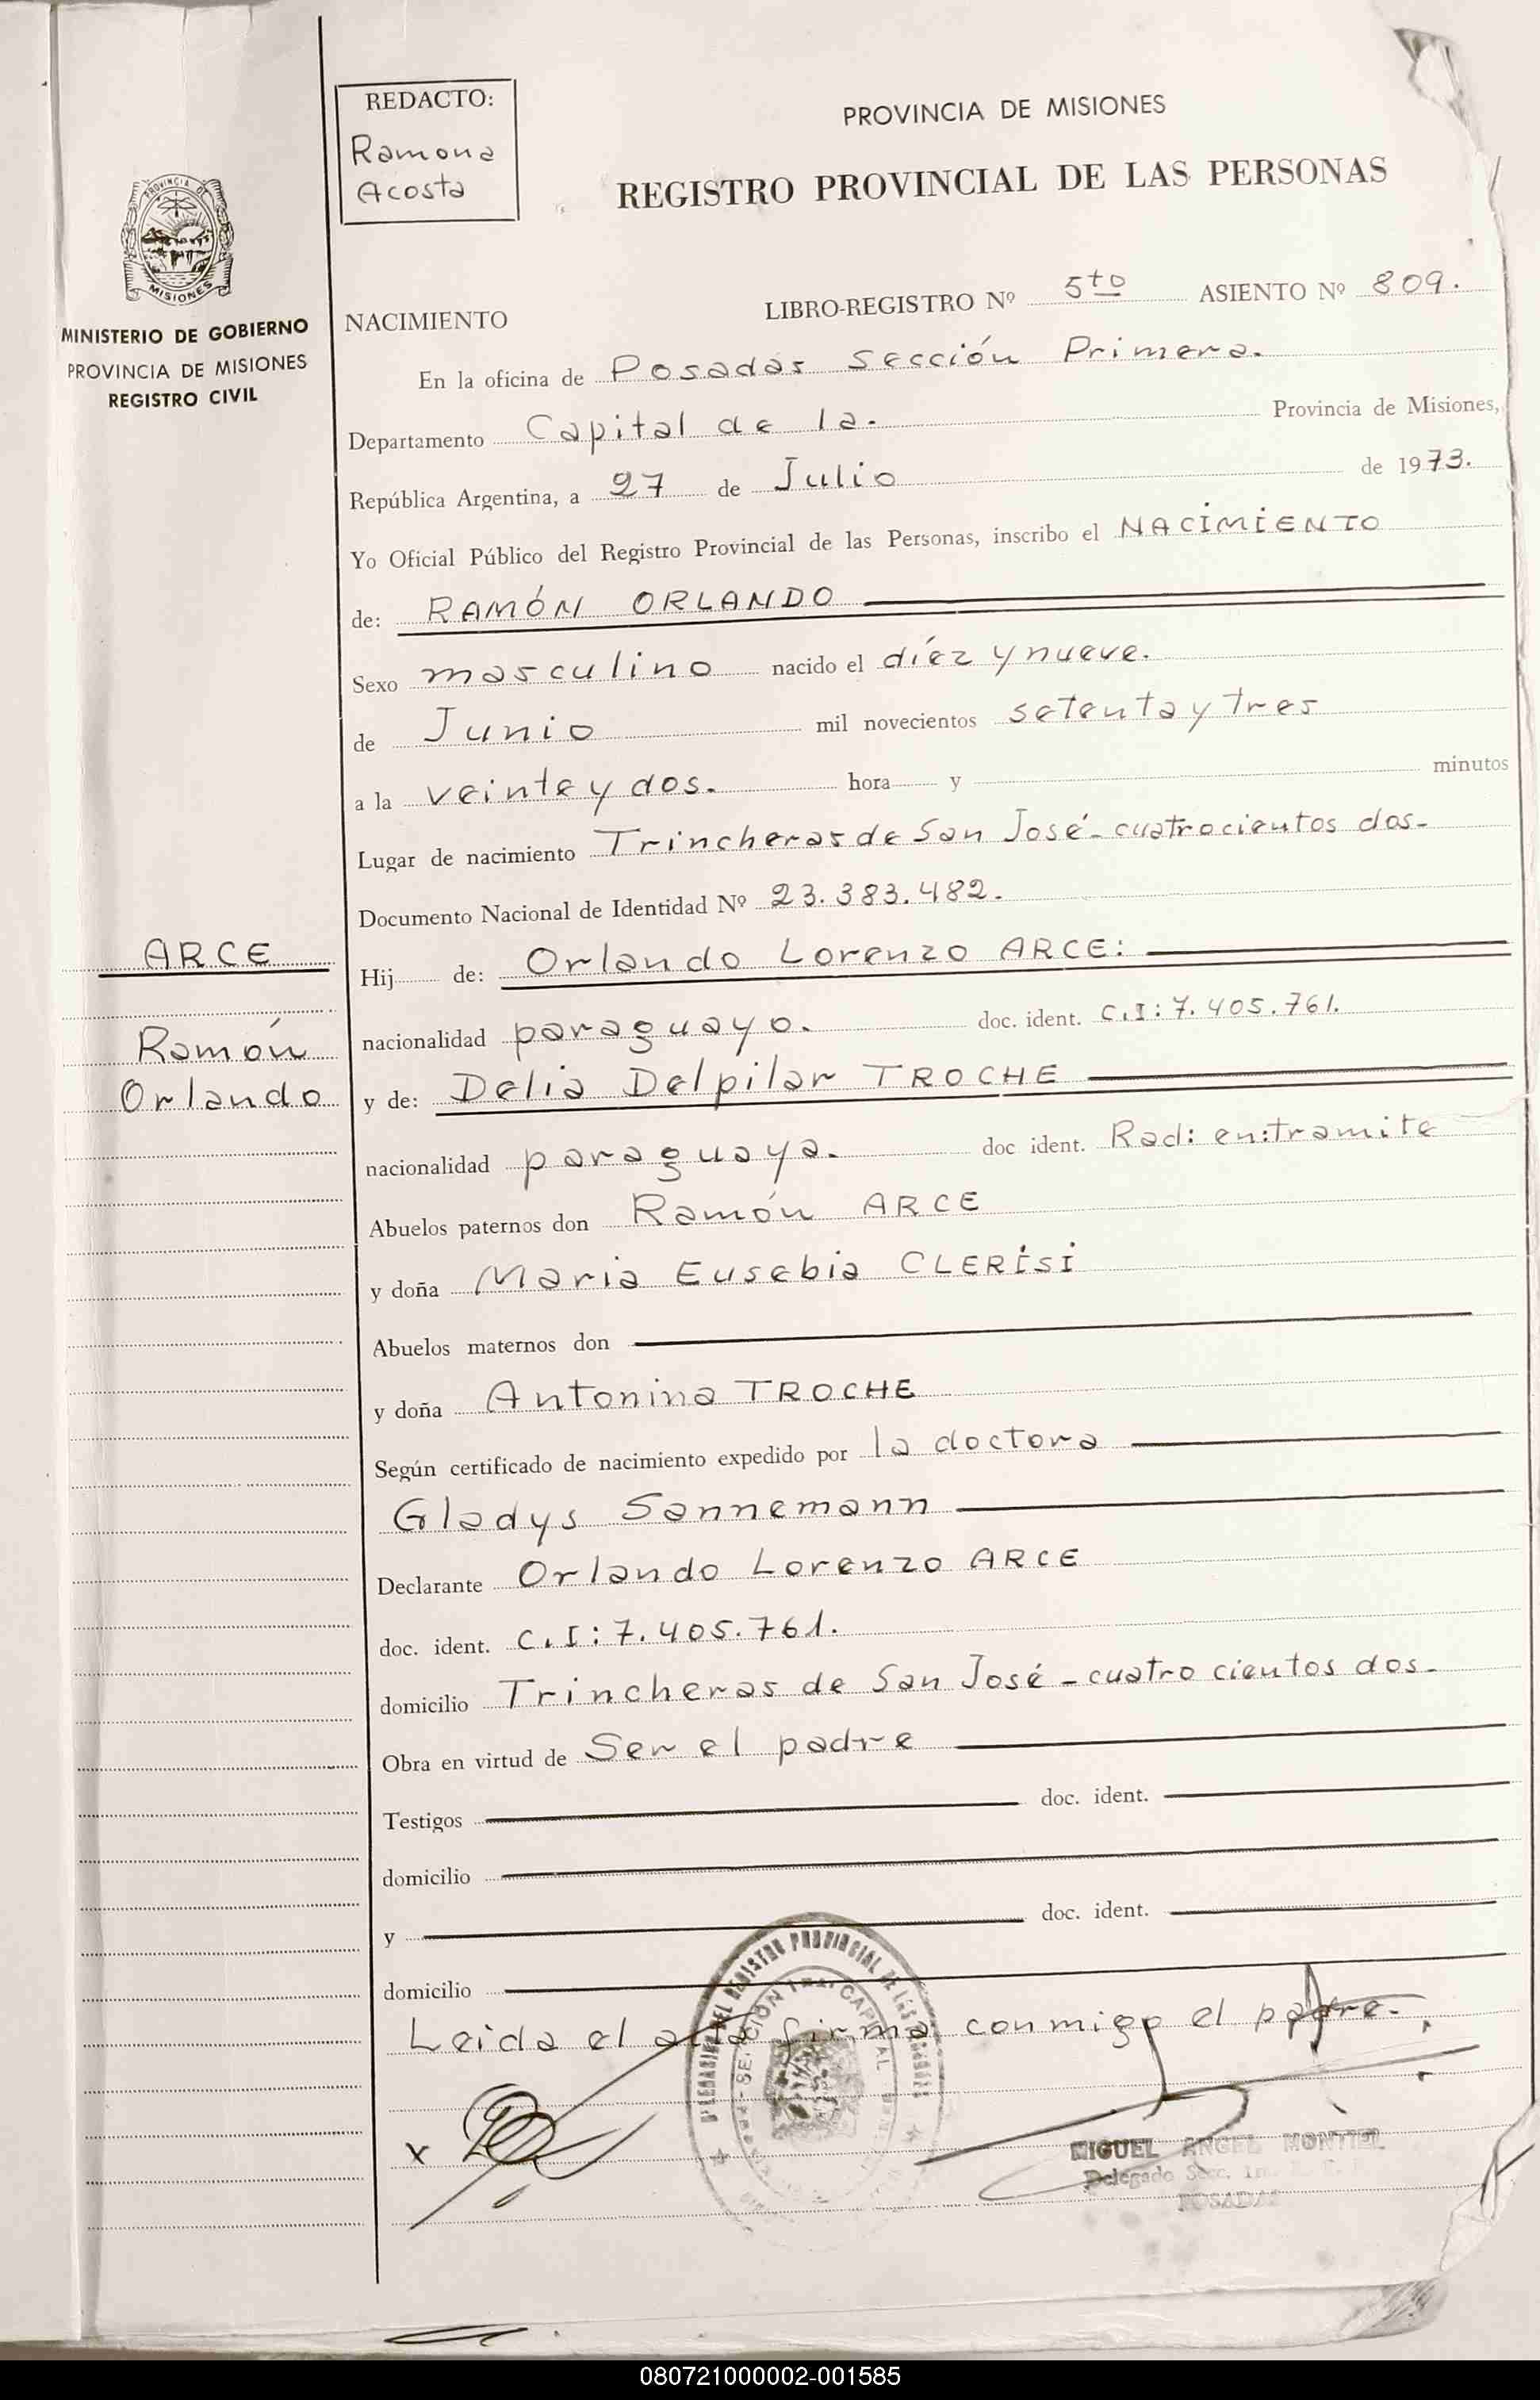 REDACTO:
Ramona
Acosta
PROVINCIA DE MISIONES
REGISTRO PROVINCIAL DE LAS PERSONAS
PROVINCIA DE
MISIONES
MINISTERIO DE GOBIERNO
PROVINCIA DE MISIONES
REGISTRO CIVIL
NACIMIENTO LIBRO-REGISTRO Nº 5to ASIENTO Nº 809.
En la oficina de Posadas sección Primera.
Departamento Capital de la. Provincia de Misiones,
República Argentina, a 27 de Julio de 1973.
Yo Oficial Público del Registro Provincial de las Personas, inscribo el NACIMIENTO
de: RAMÓN ORLANDO
Sexo masculino nacido el díez y nueve.
de Junio mil novecientos setenta y tres
a la veinte y dos. hora y minutos
Lugar de nacimiento Trincheras de San José - cuatrocientos dos-
Documento Nacional de Identidad Nº 23.383.482.
ARCE
Ramón
Orlando
Hij de: Orlando Lorenzo ARCE:
nacionalidad paraguayo. doc. ident. C.I: 7.405.761.
y de: Delia Delpilar TROCHE
nacionalidad paraguaya. doc ident. Rad: en:tramite
Abuelos paternos don Ramón ARCE
y doña Maria Eusebia CLERISI
Abuelos maternos don
y doña Antonina TROCHE
Según certificado de nacimiento expedido por la doctora
Gladys Sannemann
Declarante Orlando Lorenzo ARCE
doc. ident. C.I: 7.405.761.
domicilio Trincheras de San José - cuatro cientos dos-
Obra en virtud de Ser el padre
Testigos doc. ident.
domicilio
y doc. ident.
domicilio
Leida el acta firma conmigo el padre.
DEL REGISTRO PROVINCIAL DE LAS
CAPITAL
x
MIGUEL ANGEL MONTIEL
Delegado Secc. 1ra.
POSADAS
080721000002-001585